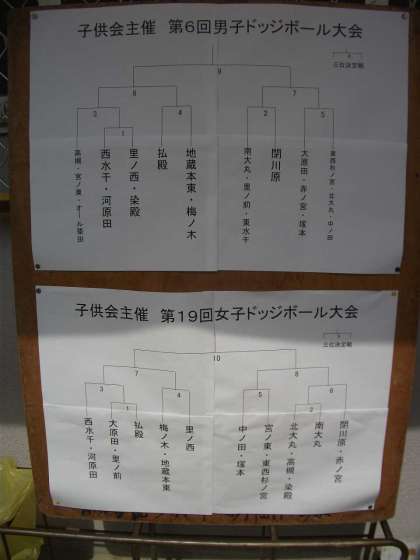 子供会主催 第6回男子ドッジボール大会
三位決定戦
9
6
7
3
4
2
5
1
西水干・河原田
里ノ西・染殿
払殿
地蔵本東・梅ノ木
南大丸・里ノ前・東水干
閉川原
大原田・赤ノ宮・塚本
子供会主催 第19回女子ドッジボール大会
三位決定戦
10
7
8
3
4
5
6
1
2
西水干・河原田
大原田・里ノ前
払殿
梅ノ木・地蔵本東
里ノ西
中ノ田・塚本
宮ノ東・東西杉ノ宮
北大丸・高槻・染殿
南大丸
閉川原・赤ノ宮